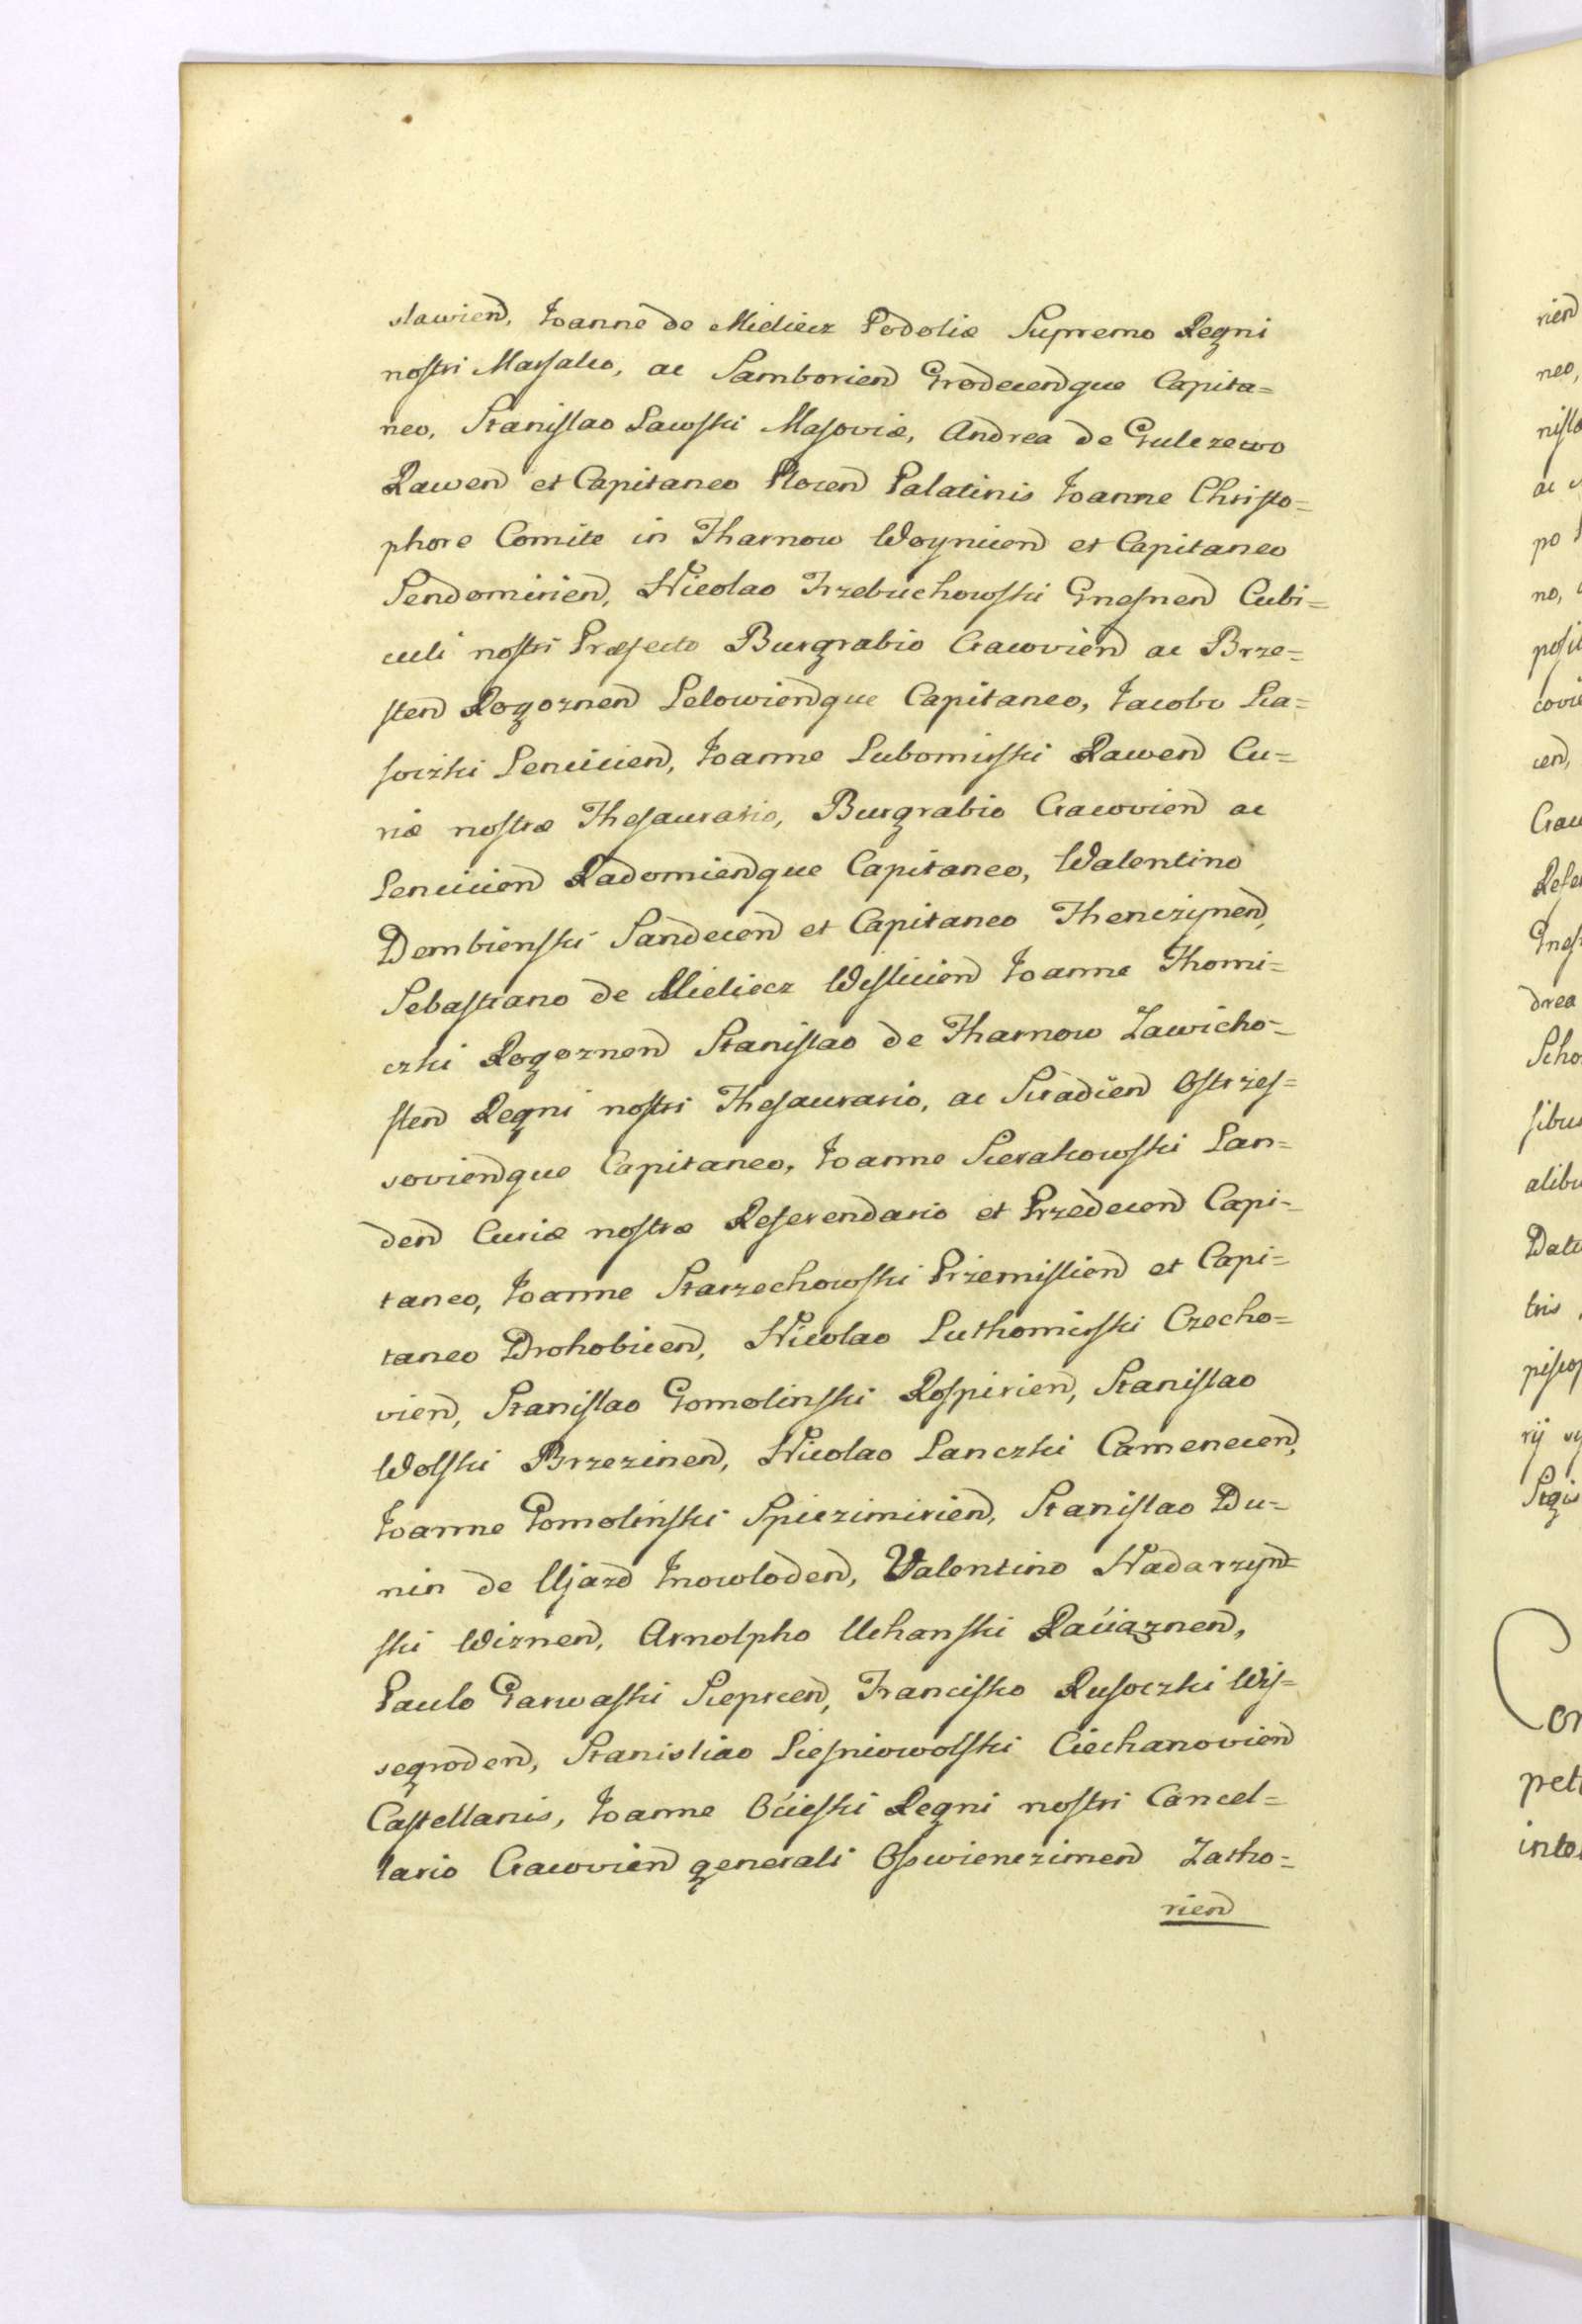 slawien, Joanne de Mieliecz Podoliæ Supremo Regni
nostri Marsalco, ac Samborien Grodecenque Capita=
neo, Stanislao Lawski Masoviæ, Andrea de Gulczewo
Rawen et Capitaneo Plocen Palatinis Joanne Christo=
phore Comite in Tharnow Woynicen et Capitaneo
Sendomirien, Nicolao Trzebuchowski Gnesnen Cubi=
culi nostri Præfecto Burgrabio Cracovien ac Brze=
sten Rogoznen Lelowienque Capitaneo, Jacobo Lia=
soczki Lencicien, Joanne Lubomirski Rawen Cu=
riæ nostræ Thesaurario, Burgrabio Cracovien ac
Lencicien Radomienque Capitaneo, Walentino
Dembienski Sandecen et Capitaneo Thenczynen,
Sebastiano de Mieliecz Wislicien Joanne Thomi=
czki Rogoznen Stanislao de Tharnow Zawicho=
sten Regni nostri Thesaurario, ac Siradien Ostrzes=
sovienque Capitaneo, Joanne Sierakowski Lan=
den Curiæ nostræ Referendario et Przedecen Capi=
taneo, Joanne Starzechowski Przemislien et Capi=
taneo Drohobicen, Nicolao Luthomirski Czecho=
vien, Stanislao Gomolinski Rospirien, Stanislao
Wolski Brzezinen, Nicolao Lanczki Camenecen,
Joanne Gomolinski Spiczimirien, Stanislao Du=
nin de Ujazd Jnowloden, Valentino Nadarzyn=
ski Wiznen, Arnolpho Uchanski Raciaznen,
Paulo Garwaski Sieprcen, Francisko Rusoczki Wis=
segroden, Stanisliao Liesniowolski Ciechanovien
Castellanis, Joanne Ocieski Regni nostri Cancel=
lario Cracovien generali Osswienczimen Zatho=
rien
rien
neo,
ac
po
no,
covie
cen,
drea
alibu
tris
rij
pet
inte